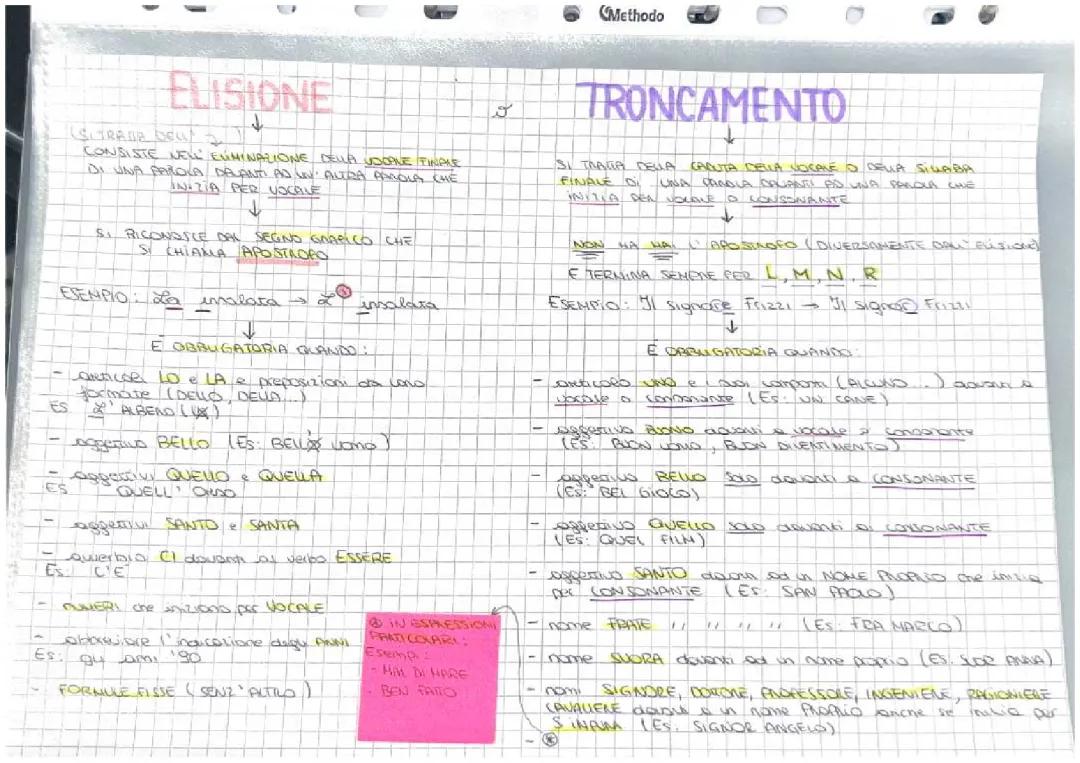 Methodo
ELISIONE
(SI TRATTA DELL'
CONSISTE NELL'ELIMINAZIONE DELLA VOCALE FINALE
DI UNA PAROLA DAVANTI AD UN'ALTRA PAROLA CHE
INIZIA PER VOCALE
SI RICONOSCE DAL SEGNO GRAFICO CHE
SI CHIAMA APOSTROFO
ESEMPIO: La insalata → L' insalata
È OBBLIGATORIA QUANDO:
- articoli LO e LA e preposizioni da loro
formate (DELLO, DELLA...)
ES L'ALBERO
- aggettivo BELLO (ES: BELL' uomo)
- aggettivi QUELLO e QUELLA
ES QUELL' Orso
- aggettivi SANTO e SANTA
- avverbio CI davanti al verbo ESSERE
Es: C'È
- NUMERI che iniziano per VOCALE
- abbreviare l'indicazione degli ANNI
Es: gli anni '90
- FORMULE FISSE (SENZ'ALTRO)
o
TRONCAMENTO
SI TRATTA DELLA CADUTA DELLA VOCALE O DELLA SILLABA
FINALE DI UNA PAROLA DAVANTI AD UNA PAROLA CHE
INIZIA PER VOCALE O CONSONANTE
NON HA MAI L'APOSTROFO (DIVERSAMENTE DALL'ELISIONE)
E TERMINA SEMPRE PER L, M, N, R
ESEMPIO: Il signore FRIZZI → Il signor FRIZZI
È OBBLIGATORIA QUANDO:
- articolo UNO e i suoi composti (ALCUNO...) davanti a
vocale o consonante (ES: UN CANE)
- aggettivo BUONO davanti a vocale o consonante
(ES: BUON UOMO, BUON DIVERTIMENTO)
- aggettivo BELLO solo davanti a CONSONANTE
(ES: BEL GIOCO)
- aggettivo QUELLO solo davanti a CONSONANTE
(ES: QUEL FILM)
- aggettivo SANTO davanti ad un NOME PROPRIO che inizia
per CONSONANTE (ES: SAN PAOLO)
- nome FRATE " " " " (ES: FRA MARCO)
- nome SUORA davanti ad un nome proprio (ES: SUOR ANNA)
- nomi SIGNORE, DOTTORE, PROFESSORE, INGENIERE, RAGIONIERE
CAVALIERE davanti a un nome PROPRIO anche se inizia per
S IMPURA (ES. SIGNOR ANGELO)
- ⊛
⊛ IN ESPRESSIONI
PARTICOLARI:
Esempi:
- MAL DI MARE
- BEN FATTO